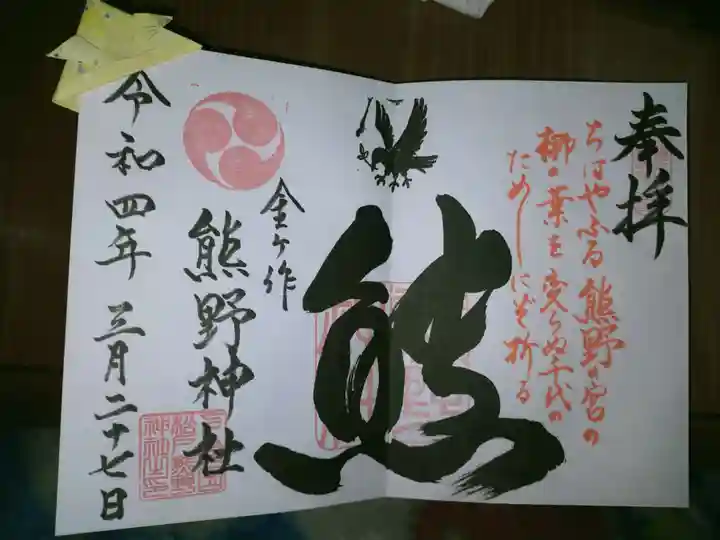 奉拝
ちはやふる熊野の宮の
梛の葉を変らぬ千代の
ためしにぞ折る
熊
金ケ作
熊野神社
令和四年三月二十七日